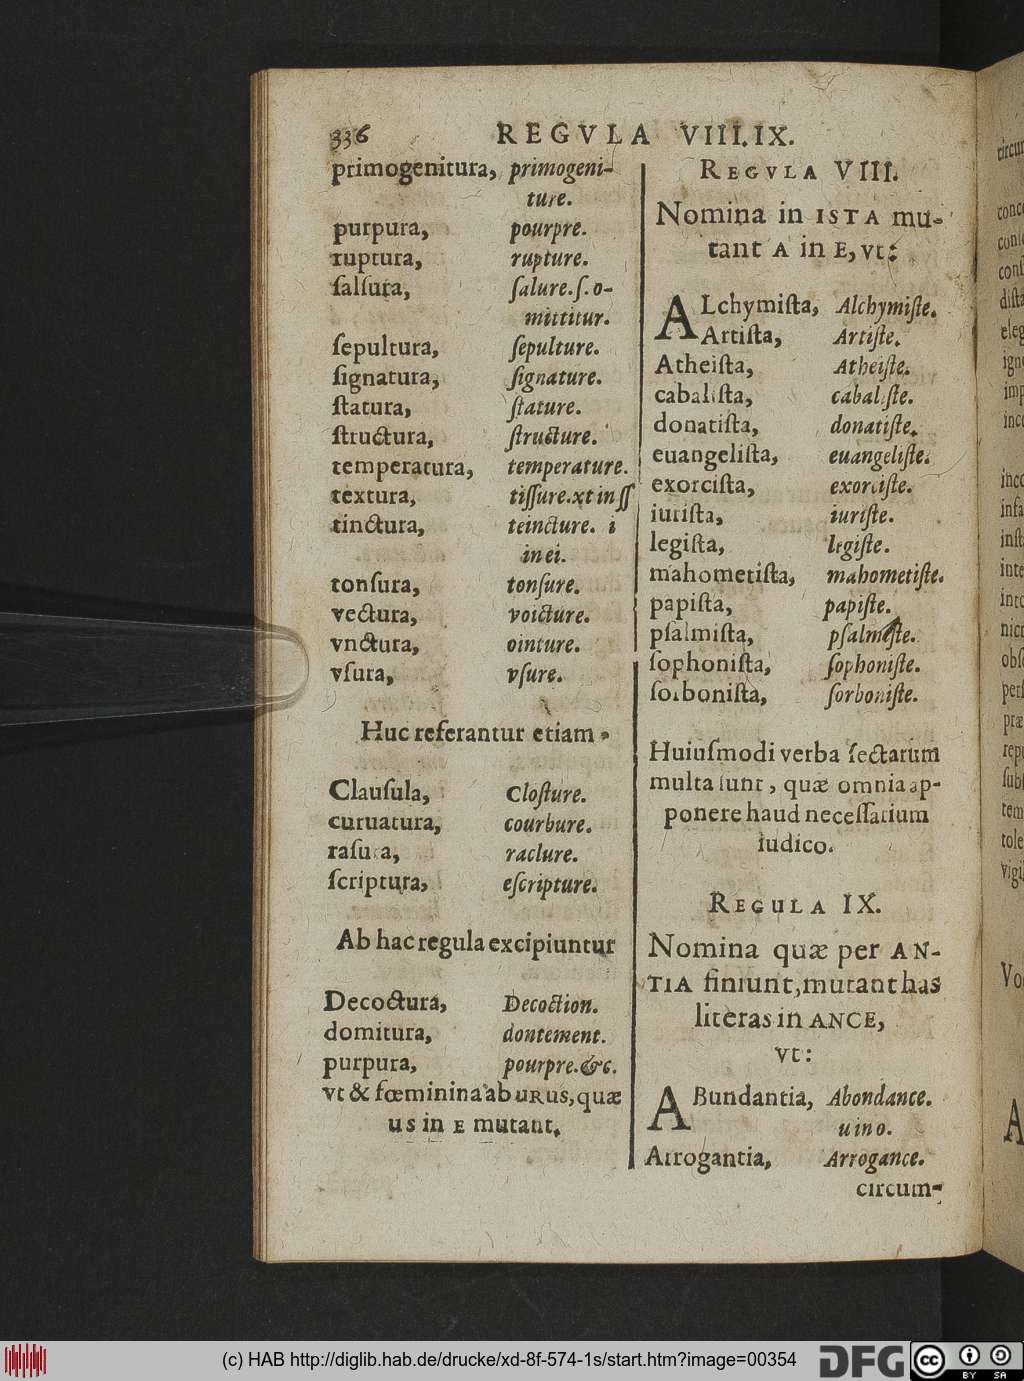 336 REGVLA VIII. IX.
primogenitura, primogeni-
ture.
purpura, pourpre.
ruptura, rupture.
ſalſura, ſalure. ſ. o-
mittitur.
ſepultura, ſepulture.
ſignatura, ſignature.
ſtatura, ſtature.
ſtructura, ſtructure.
temperatura, temperature.
textura, tiſſure. xt in ſſ
tinctura, teincture. i
in ei.
tonſura, tonſure.
vectura, voicture.
vnctura, ointure.
vſura, vſure.
Huc referantur etiam
Clauſula, Cloſture.
curuatura, courbure.
raſura, raclure.
ſcriptura, eſcripture.
Ab hac regula excipiuntur
Decoctura, Decoction.
domitura, dontement.
purpura, pourpre. &c.
vt & fœminina ab URUS, quæ
us in E mutant.
REGVLA VIII.
Nomina in ISTA mu-
tant A in E, vt:
ALchymiſta, Alchymiſte.
Artiſta, Artiſte.
Atheiſta, Atheiſte.
cabaliſta, cabaliſte.
donatiſta, donatiſte.
euangeliſta, euangeliſte.
exorciſta, exorciſte.
iuriſta, iuriſte.
legiſta, legiſte.
mahometiſta, mahometiſte.
papiſta, papiſte.
pſalmiſta, pſalmiſte.
ſophoniſta, ſophoniſte.
ſorboniſta, ſorboniſte.
Huiuſmodi verba ſectarum
multa ſunt, quæ omnia ap-
ponere haud neceſſarium
iudico.
REGULA IX.
Nomina quæ per AN-
TIA finiunt, mutant has
literas in ANCE,
vt:
ABundantia, Abondance.
u in o.
Arrogantia, Arrogance.
circum-
(c) HAB http://diglib.hab.de/drucke/xd-8f-574-1s/start.htm?image=00354
DFG
cc BY SA